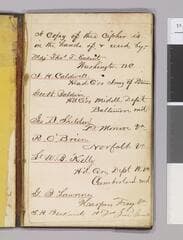 A Copy of this Cipher is
in the hands of & used by:
Maj Thos. T. Eckert
Washington DC
A. H. Caldwell
Head Qrs Army of
Geo H. Baldwin
Hd Qrs Middle Dept
Baltimore, Md
Geo D. Sheldon
Ft. Monroe Va
R. O'Brien
Norfolk Va
W. B. Kelly
Hd Qrs Dept W. Va
Cumberland Md
Harpers Ferry Va